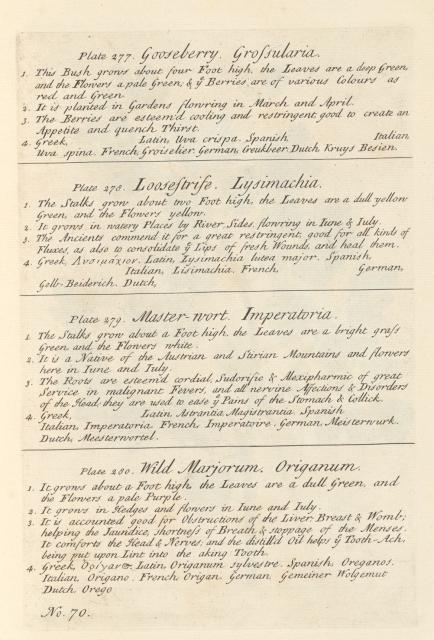 Plate 277. Gooseberry. Groſsularia.
1. This Bush grows about four Foot high, the Leaves are a deep Green,
and the Flowers a pale Green, & yͤ Berries are of various Colours as
red and Green.
2. It is planted in Gardens flowring in March and April.
3. The Berries are esteem'd cooling and restringent, good to create an
Appetite and quench Thirst.
4. Greek, Latin, Uva crispa. Spanish Italian,
Uva spina. French, Groiselier. German, Creutzbeer. Dutch, Kruys Besien.
Plate 278. Looseſtrife. Lysimachia.
1. The Stalks grow about two Foot high, the Leaves are a dull yellow
Green, and the Flowers yellow.
2. It grows in watery Places by River Sides, flowring in Iune & Iuly.
3. The Ancients commend it for a great restringent, good for all kinds of
Fluxes, as also to consolidate yͤ Lips of fresh Wounds, and heal them.
4. Greek, Λυσιμάχιον. Latin, Lysimachia lutea major. Spanish,
Italian, Lisimachia. French, German,
Gelb-Beiderich. Dutch,
Plate 279. Master-wort. Imperatoria.
1. The Stalks grow about a Foot high, the Leaves are a bright graſs
Green and the Flowers white.
2. It is a Native of the Austrian and Stirian Mountains and flowers
here in Iune and Iuly.
3. The Roots are esteem'd cordial, Sudorific & Alexipharmic of great
Service in malignant Fevers, and all nervine Affections & Disorders
of the Head; they are used to ease yͤ Pains of the Stomach & Collick.
4. Greek, Latin, Astrantia, Magistrantia. Spanish
Italian, Imperatoria. French, Imperatoire. German, Meisterwurk.
Dutch, Meesterwortel.
Plate 280. Wild Marjorum. Origanum.
1. It grows about a Foot high, the Leaves are a dull Green, and
the Flowers a pale Purple.
2. It grows in Hedges and flowers in Iune and Iuly.
3. It is accounted good for Obstructions of the Liver, Breast & Womb;
helping the Jaundice, shortneſs of Breath & stoppage of the Menses.
It comforts the Head & Nerves, and the distill'd Oil helps yͤ Tooth-Ach,
being put upon Lint into the aking Tooth.
4. Greek, Latin, Origanum sylvestre. Spanish, Oreganos.
Italian, Origano. French, Origan. German, Gemeiner Wolgemut
Dutch, Orego
No. 70.